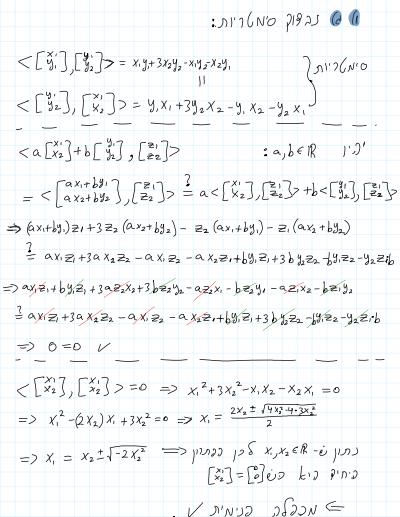 נבדוק סימטריות:
<[x₁ y₁], [y₁ y₂]> = x₁y₁+3x₂y₂-x₁y₂-x₂y₁
סימטריות
=
<[y₁ y₂], [x₁ x₂]> = y₁x₁+3y₂x₂-y₁x₂-y₂x₁
<a[x₁ x₂]+b[y₁ y₂], [z₁ z₂]> יהיו a,b∈ℝ:
= <[ax₁+by₁ ax₂+by₂], [z₁ z₂]> ?= a<[x₁ x₂],[z₁ z₂]>+b<[y₁ y₂],[z₁ z₂]>
⇒ (ax₁+by₁)z₁+3z₂(ax₂+by₂)-z₂(ax₁+by₁)-z₁(ax₂+by₂)
?= ax₁z₁+3ax₂z₂-ax₁z₂-ax₂z₁+by₁z₁+3by₂z₂-by₁z₂-y₂z₁b
⇒ ax₁z₁+by₁z₁+3az₂x₂+3bz₂y₂-az₂x₁-bz₂y₁-az₁x₂-bz₁y₂
?= ax₁z₁+3ax₂z₂-ax₁z₂-ax₂z₁+by₁z₁+3by₂z₂-by₁z₂-y₂z₁·b
⇒ 0=0 ✓
<[x₁ x₂], [x₁ x₂]>=0 ⇒ x₁²+3x₂²-x₁x₂-x₂x₁=0
⇒ x₁²-(2x₂)x₁+3x₂²=0 ⇒ x₁ = (2x₂±√(4x₂²-4·3x₂²))/2
⇒ x₁ = x₂±√(-2x₂²) ⇐ נתון ש- x₁,x₂∈ℝ לכן הפתרון
היחיד הוא כש [x₁ x₂]=[0 0]
⇐ מכפלה פנימית ✓.